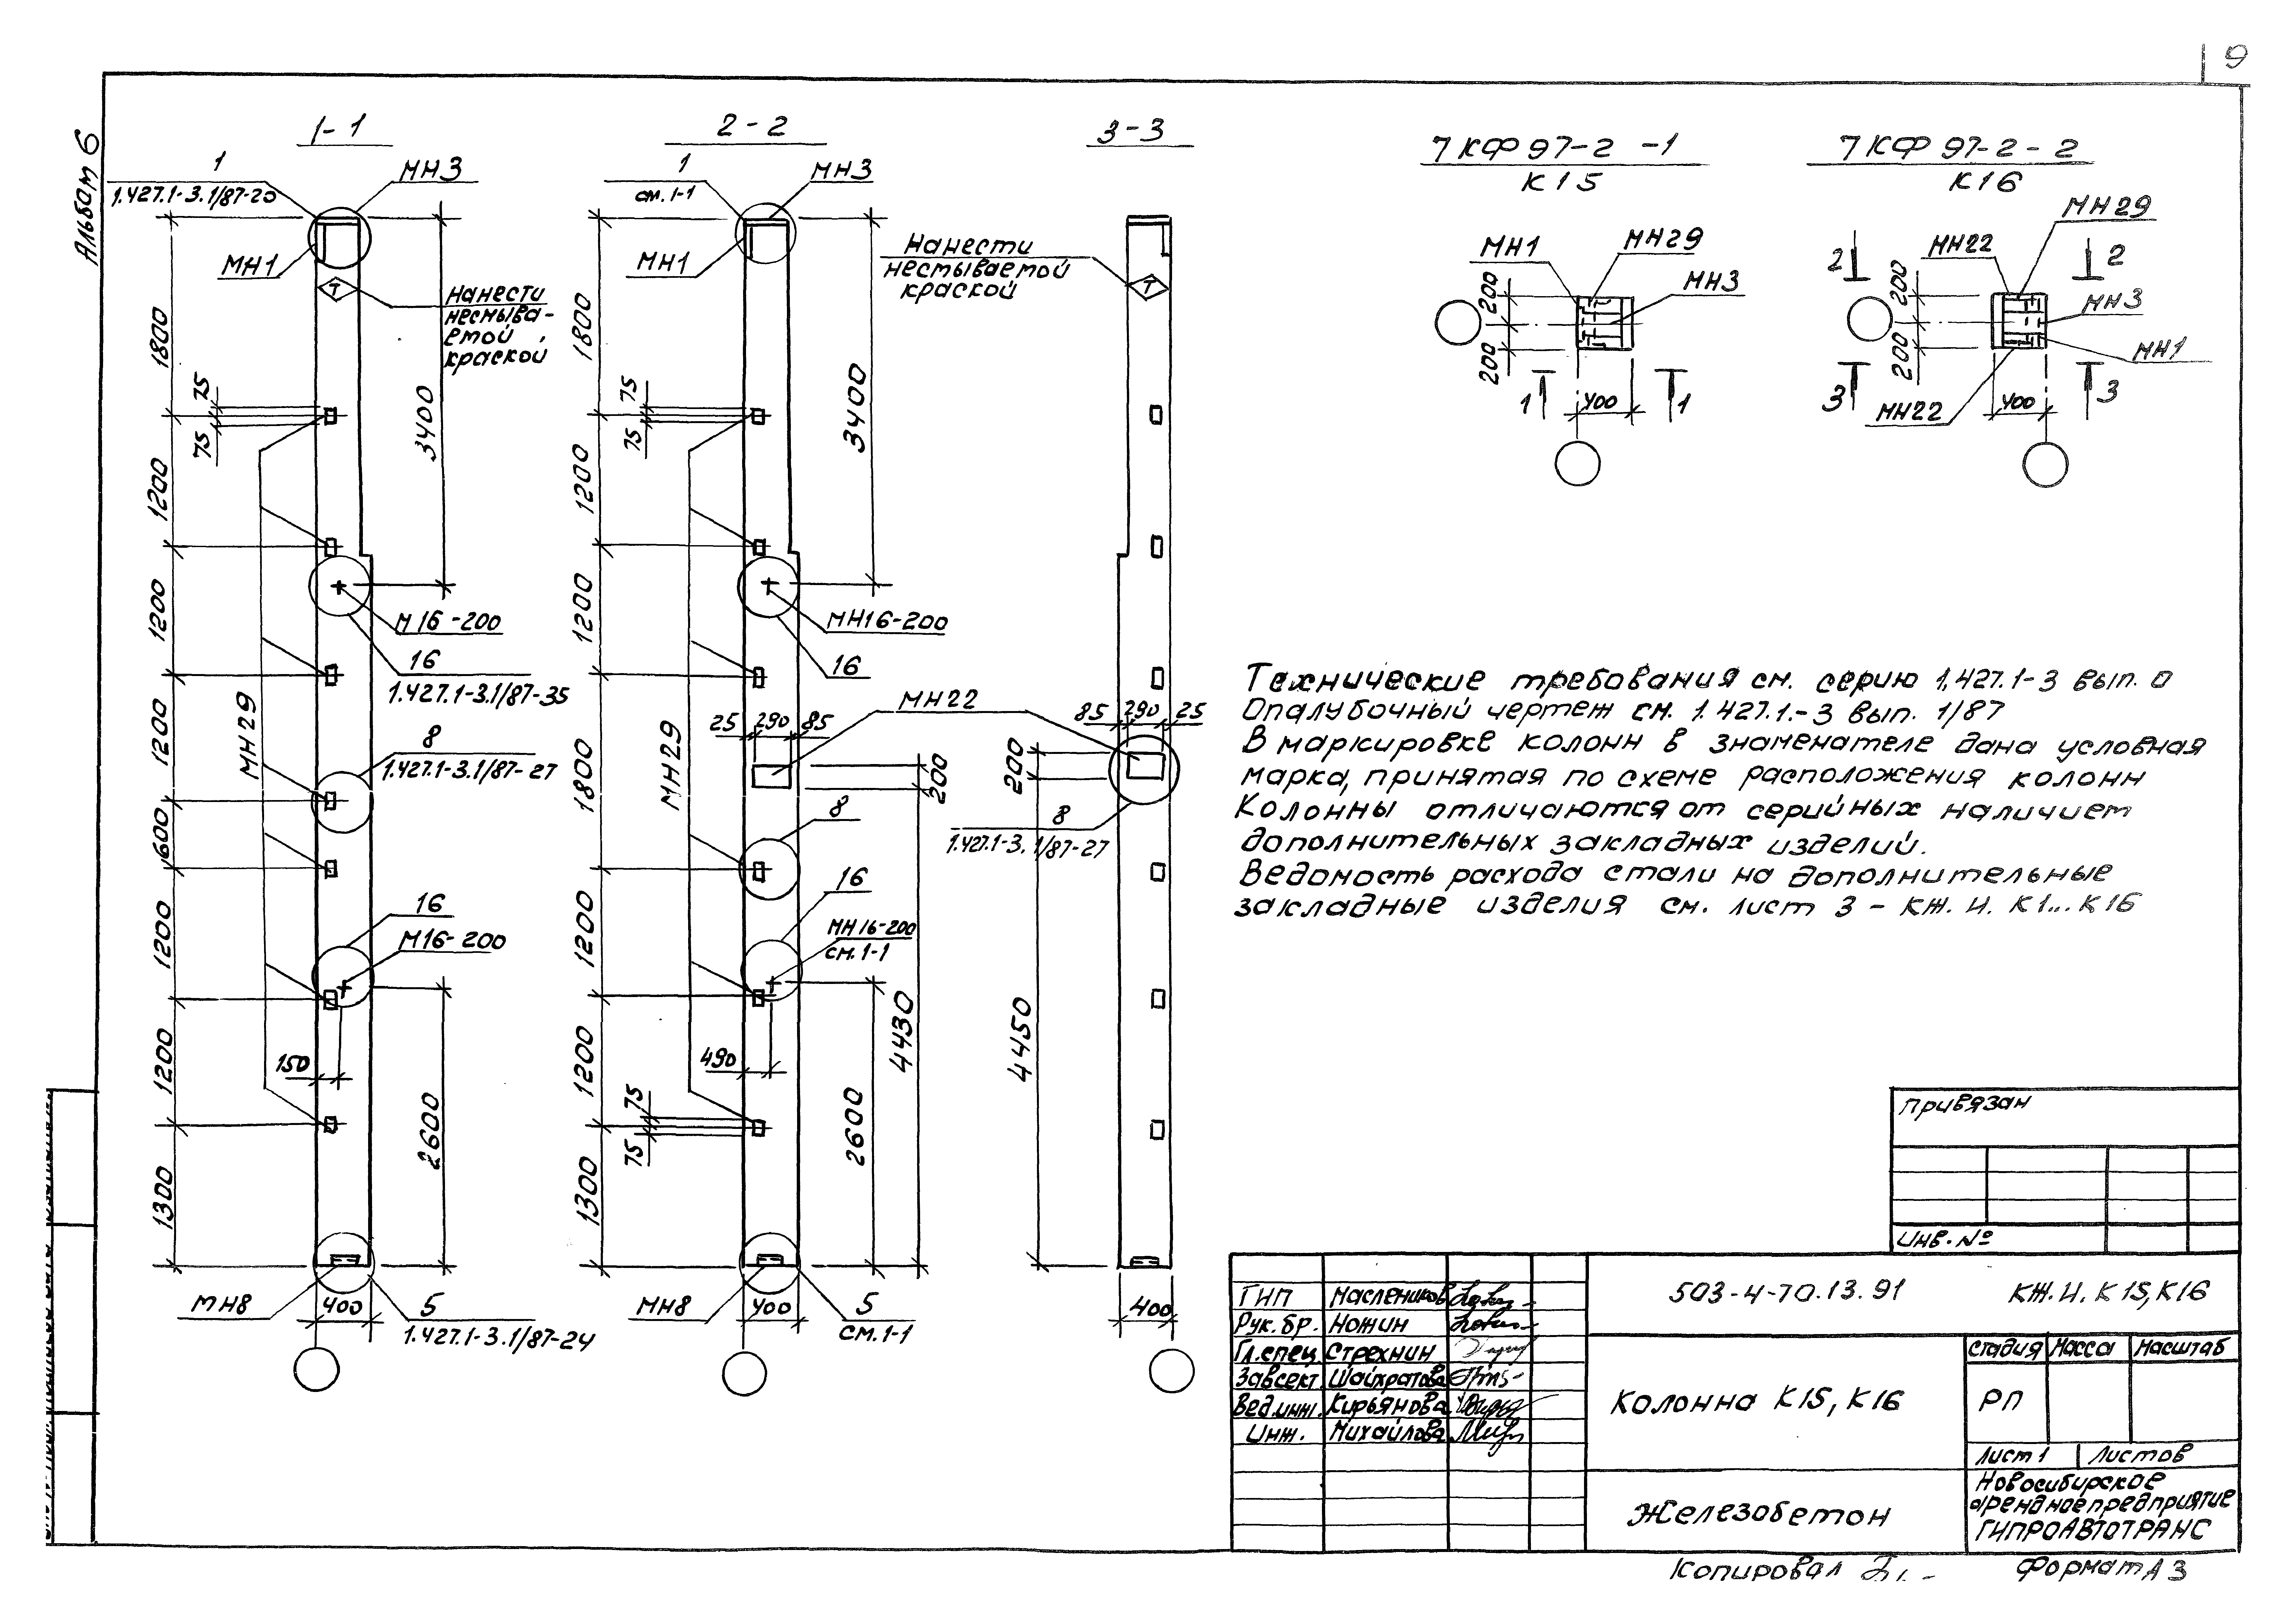 9
Альбом 6
1-1
1
1.427.1-3.1/87-20
МН3
МН1
Нанести
несмыва-
емой
краской
1800
75
75
1200
1200
1200
600
1200
1200
1300
3400
М16-200
16
1.427.1-3.1/87-35
МН29
8
1.427.1-3.1/87-27
16
М16-200
150
2600
МН8
400
5
1.427.1-3.1/87-24
2-2
1
см. 1-1
МН3
МН1
1800
75
75
1200
1200
1800
1200
1200
75
75
1300
3400
МН16-200
16
МН22
25 290 85
МН29
200
8
16
МН16-200
см. 1-1
490
4430
2600
МН8
400
5
см. 1-1
3-3
Нанести
несмываемой
краской
Т
85 290 25
200
8
1.427.1-3.1/87-27
4450
400
7КФ97-2-1
К15
МН1
МН29
МН3
200
200
400
1 1
7КФ97-2-2
К16
МН29
МН22
2 2
200
200
МН3
МН1
МН22
400
3 3
Технические требования см. серию 1.427.1-3 вып. 0
Опалубочный чертеж см. 1.427.1.-3 вып. 1/87
В маркировке колонн в знаменателе дана условная
марка, принятая по схеме расположения колонн
Колонны отличаются от серийных наличием
дополнительных закладных изделий.
Ведомость расхода стали на дополнительные
закладные изделия см. лист 3 - КЖ.И. К1...К16
Привязан
Инв. №
ГИП Маслеников
Рук.бр. Ножин
Гл.спец. Стрехнин
Завсект. Шайхратова
Вед.инж. Кирьянова
Инж. Михайлова
503-4-70.13.91 КЖ.И.К15,К16
Колонна К15, К16
Стадия Масса Масштаб
РП
Лист 1 Листов
Железобетон
Новосибирское
арендное предприятие
ГИПРОАВТОТРАНС
Копировал
Формат А3